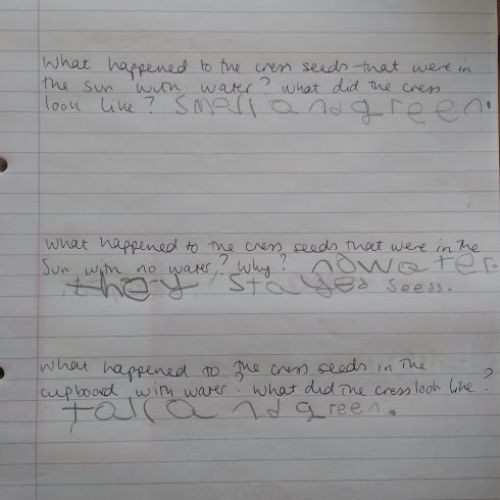 What happened to the cress seeds that were in
the sun with water? what did the cress
look like? smallandgreen.
What happened to the cress seeds that were in the
Sun with no water? Why? nowater.
they stayed seeds.
What happened to the cress seeds in the
cupboard with water? What did the cress look like?
tall and green.